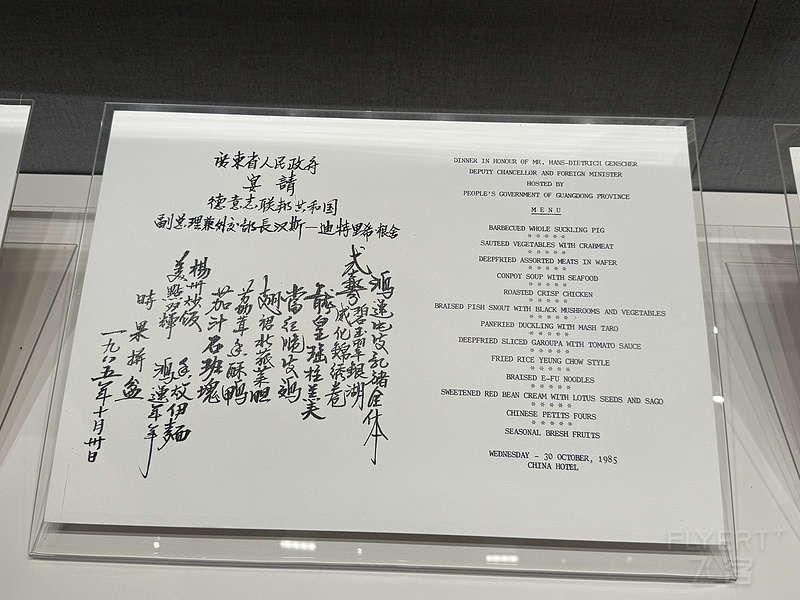 廣東省人民政府
宴請
德意志联邦共和国
副总理兼外交部長汉斯—迪特里希·根舍
鴻運燒皮乳豬全体
碧翠銀湖
龍皇瑶柱羹
當红脆皮鸡
荔茸香酥鴨
茄汁石班塊
楊州炒飯
美點双輝
時果拼盆
一九八五年十月卅日
DINNER IN HONOUR OF MR. HANS-DIETRICH GENSCHER
DEPUTY CHANCELLOR AND FOREIGN MINISTER
HOSTED BY
PEOPLE'S GOVERNMENT OF GUANGDONG PROVINCE
MENU
BARBECUED WHOLE SUCKLING PIG
* * * * *
SAUTEED VEGETABLES WITH CRABMEAT
* * * * *
DEEPFRIED ASSORTED MEATS IN WAFER
* * * * *
CONPOY SOUP WITH SEAFOOD
* * * * *
ROASTED CRISP CHICKEN
* * * * *
BRAISED FISH SNOUT WITH BLACK MUSHROOMS AND VEGETABLES
* * * * *
PANFRIED DUCKLING WITH MASH TARO
* * * * *
DEEPFRIED SLICED GAROUPA WITH TOMATO SAUCE
* * * * *
FRIED RICE YEUNG CHOW STYLE
* * * * *
BRAISED E-FU NOODLES
* * * * *
SWEETENED RED BEAN CREAM WITH LOTUS SEEDS AND SAGO
* * * * *
CHINESE PETITS FOURS
* * * * *
SEASONAL BRESH FRUITS
WEDNESDAY - 30 OCTOBER, 1985
CHINA HOTEL
FLYERT+